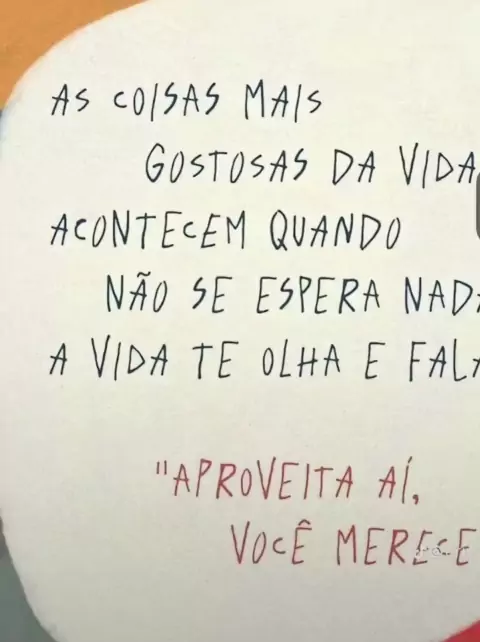 AS COISAS MAIS
GOSTOSAS DA VIDA
ACONTECEM QUANDO
NÃO SE ESPERA NADA
A VIDA TE OLHA E FALA
"APROVEITA AÍ,
VOCÊ MERECE